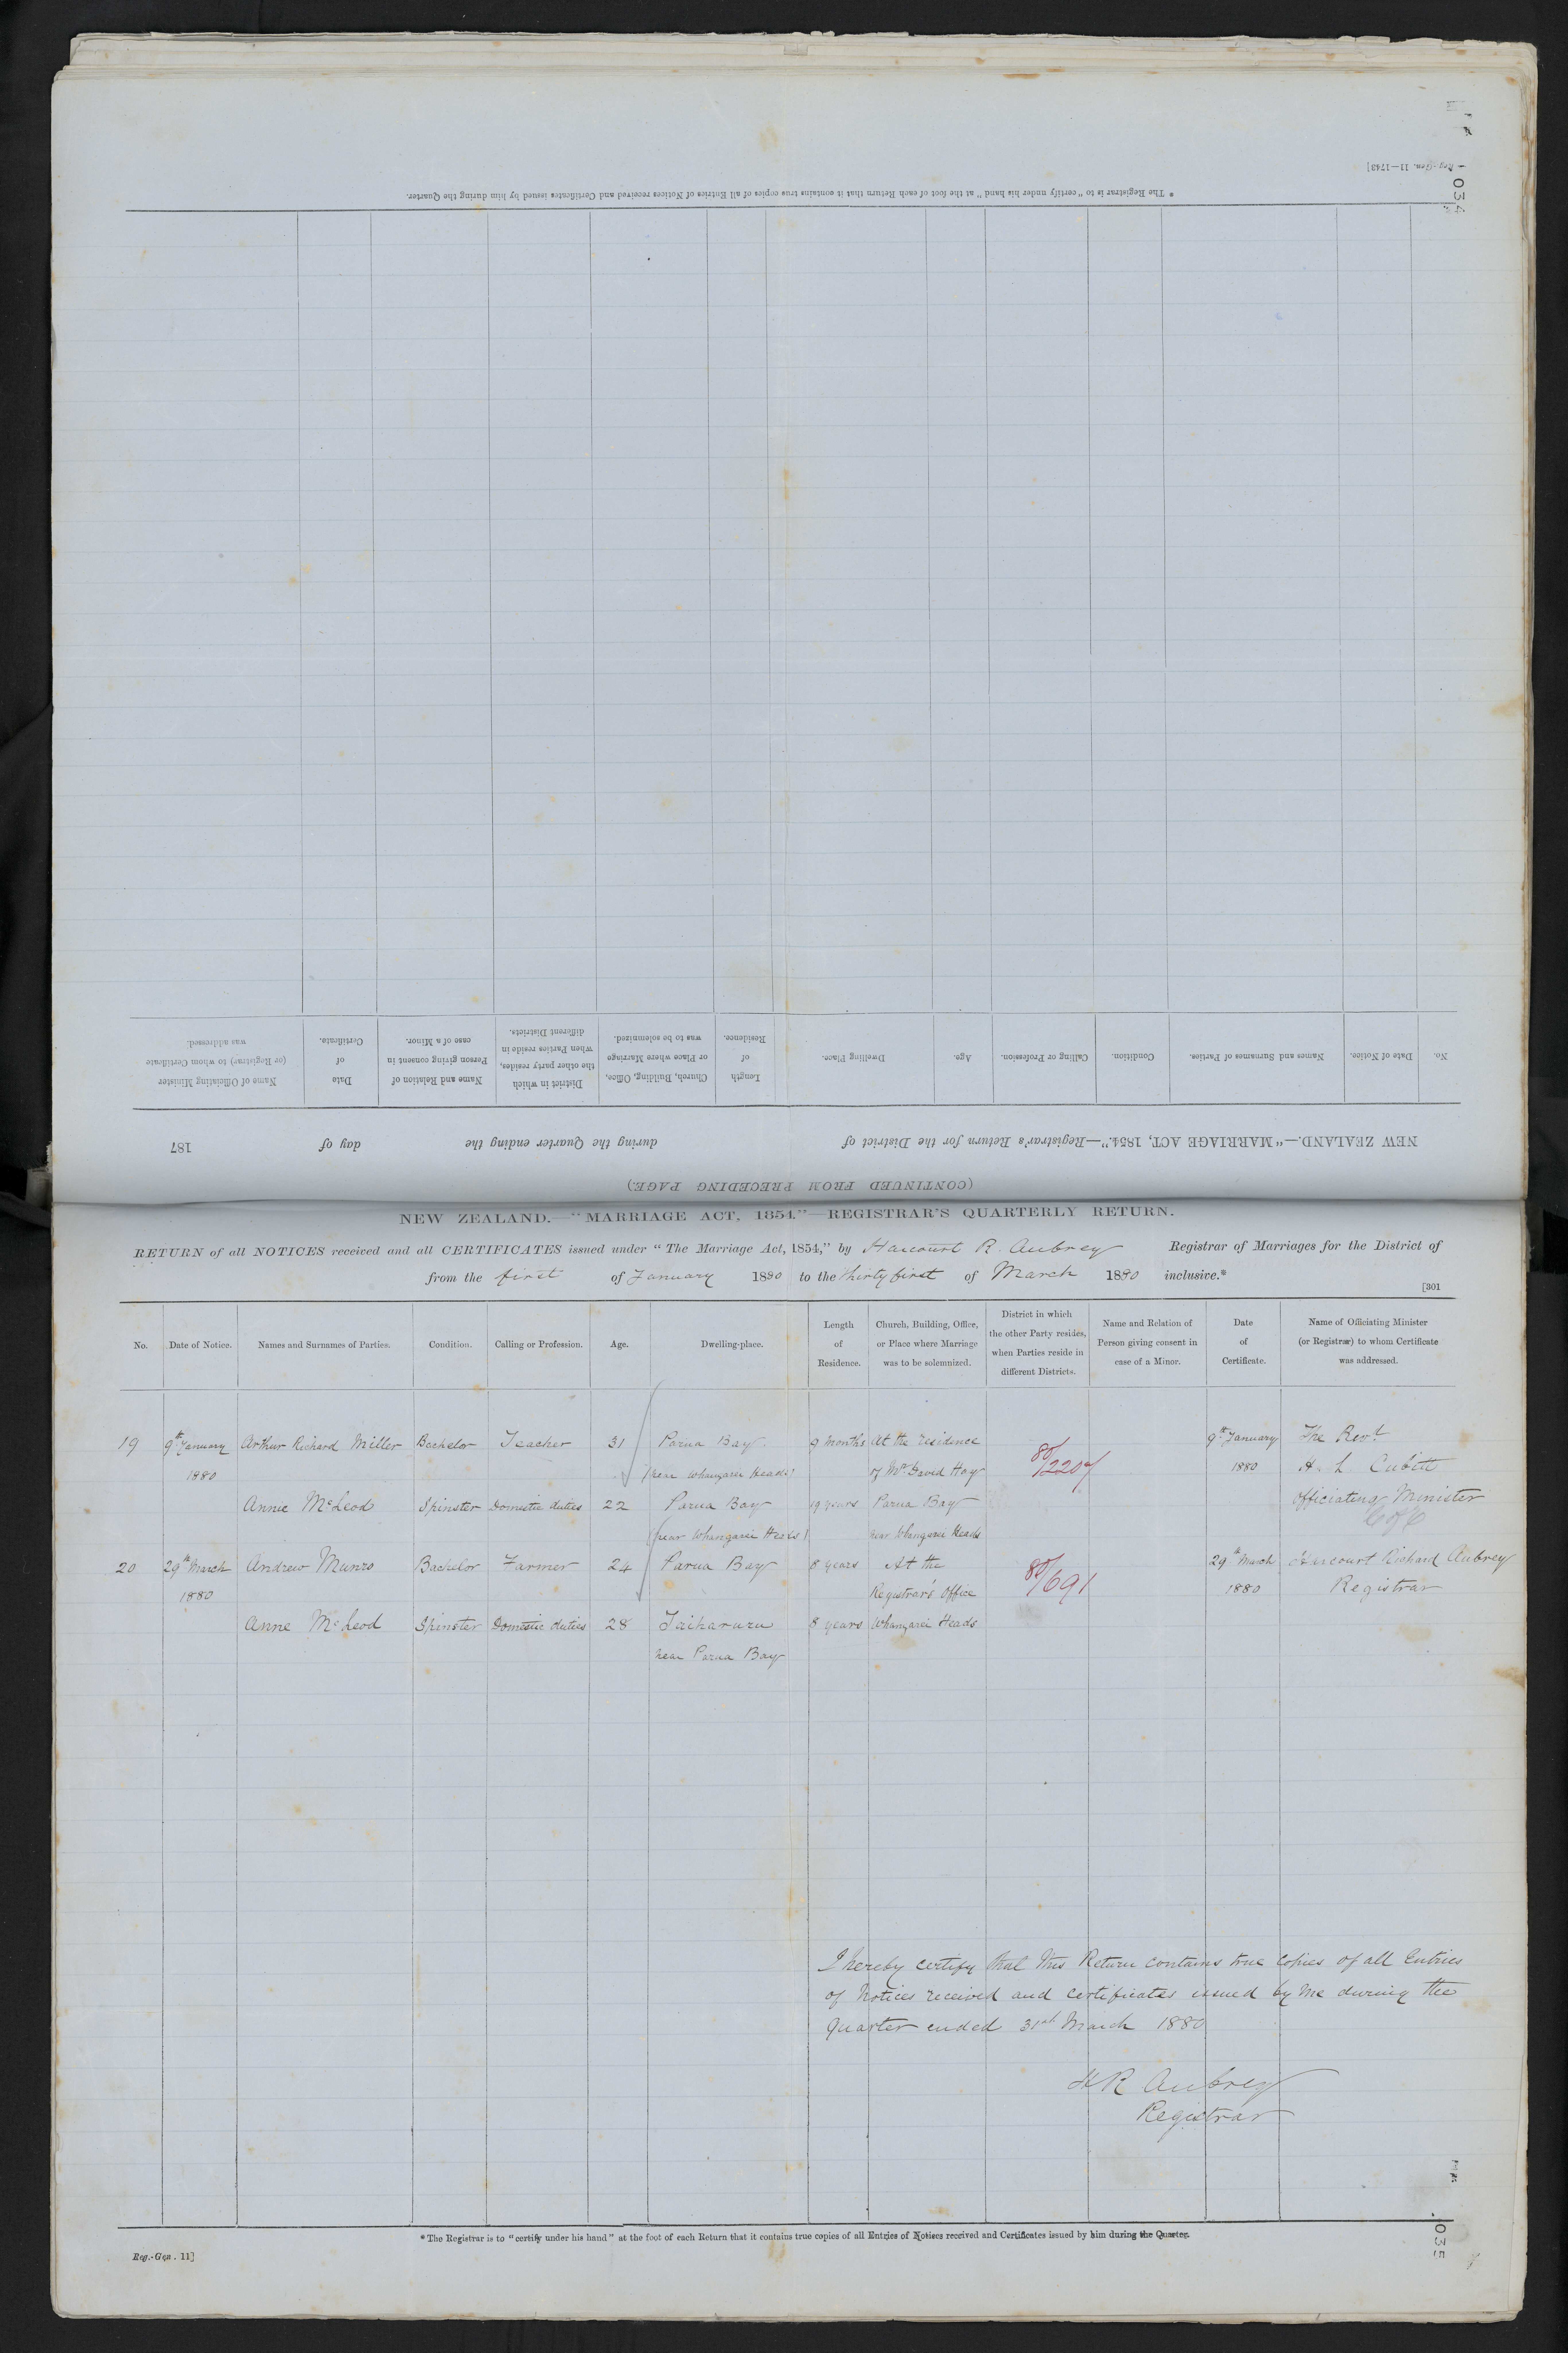 Reg.-Gen. 11—1743]
034
* The Registrar is to "certify under his hand" at the foot of each Return that it contains true copies of all Entries of Notices received and Certificates issued by him during the Quarter.
No.
Date of Notice.
Names and Surnames of Parties.
Condition.
Calling or Profession.
Age.
Dwelling Place.
Length of Residence.
Church, Building, Office, or Place where Marriage was to be solemnized.
District in which the other party resides, when Parties reside in different Districts.
Name and Relation of Person giving consent in case of a Minor.
Date of Certificate.
Name of Officiating Minister (or Registrar) to whom Certificate was addressed.
NEW ZEALAND.—"MARRIAGE ACT, 1854."—Registrar's Return for the District of during the Quarter ending the day of 187
(CONTINUED FROM PRECEDING PAGE.)
NEW ZEALAND.—"MARRIAGE ACT, 1854."—REGISTRAR'S QUARTERLY RETURN.
RETURN of all NOTICES received and all CERTIFICATES issued under "The Marriage Act, 1854," by Harcourt R. Aubrey Registrar of Marriages for the District of
from the first of January 1880 to the thirty first of March 1880 inclusive.*
[301
No.
Date of Notice.
Names and Surnames of Parties.
Condition.
Calling or Profession.
Age.
Dwelling-place.
Length of Residence.
Church, Building, Office, or Place where Marriage was to be solemnized.
District in which the other Party resides, when Parties reside in different Districts.
Name and Relation of Person giving consent in case of a Minor.
Date of Certificate.
Name of Officiating Minister (or Registrar) to whom Certificate was addressed.
19 9th January Arthur Richard Miller Bachelor Teacher 31 Parua Bay 9 months At the residence 80/2207 9th January The Revd
1880 (near Whangarei Heads) of Mr David Hay 1880 H. L Cubitt
Annie McLeod Spinster Domestic duties 22 Parua Bay 19 years Parua Bay Officiating Minister
(near Whangarei Heads) near Whangarei Heads C of E
20 29th March Andrew Munro Bachelor Farmer 24 Parua Bay 8 years At the 80/691 29th March Harcourt Richard Aubrey
1880 Registrar's Office 1880 Registrar
Anne McLeod Spinster Domestic duties 28 Taiharuru 8 years Whangarei Heads
near Parua Bay
I hereby certify that this Return contains true copies of all Entries
of Notices received and certificates issued by me during the
Quarter ended 31st March 1880
H R Aubrey
Registrar
* The Registrar is to "certify under his hand" at the foot of each Return that it contains true copies of all Entries of Notices received and Certificates issued by him during the Quarter.
Reg.-Gen. 11]
035